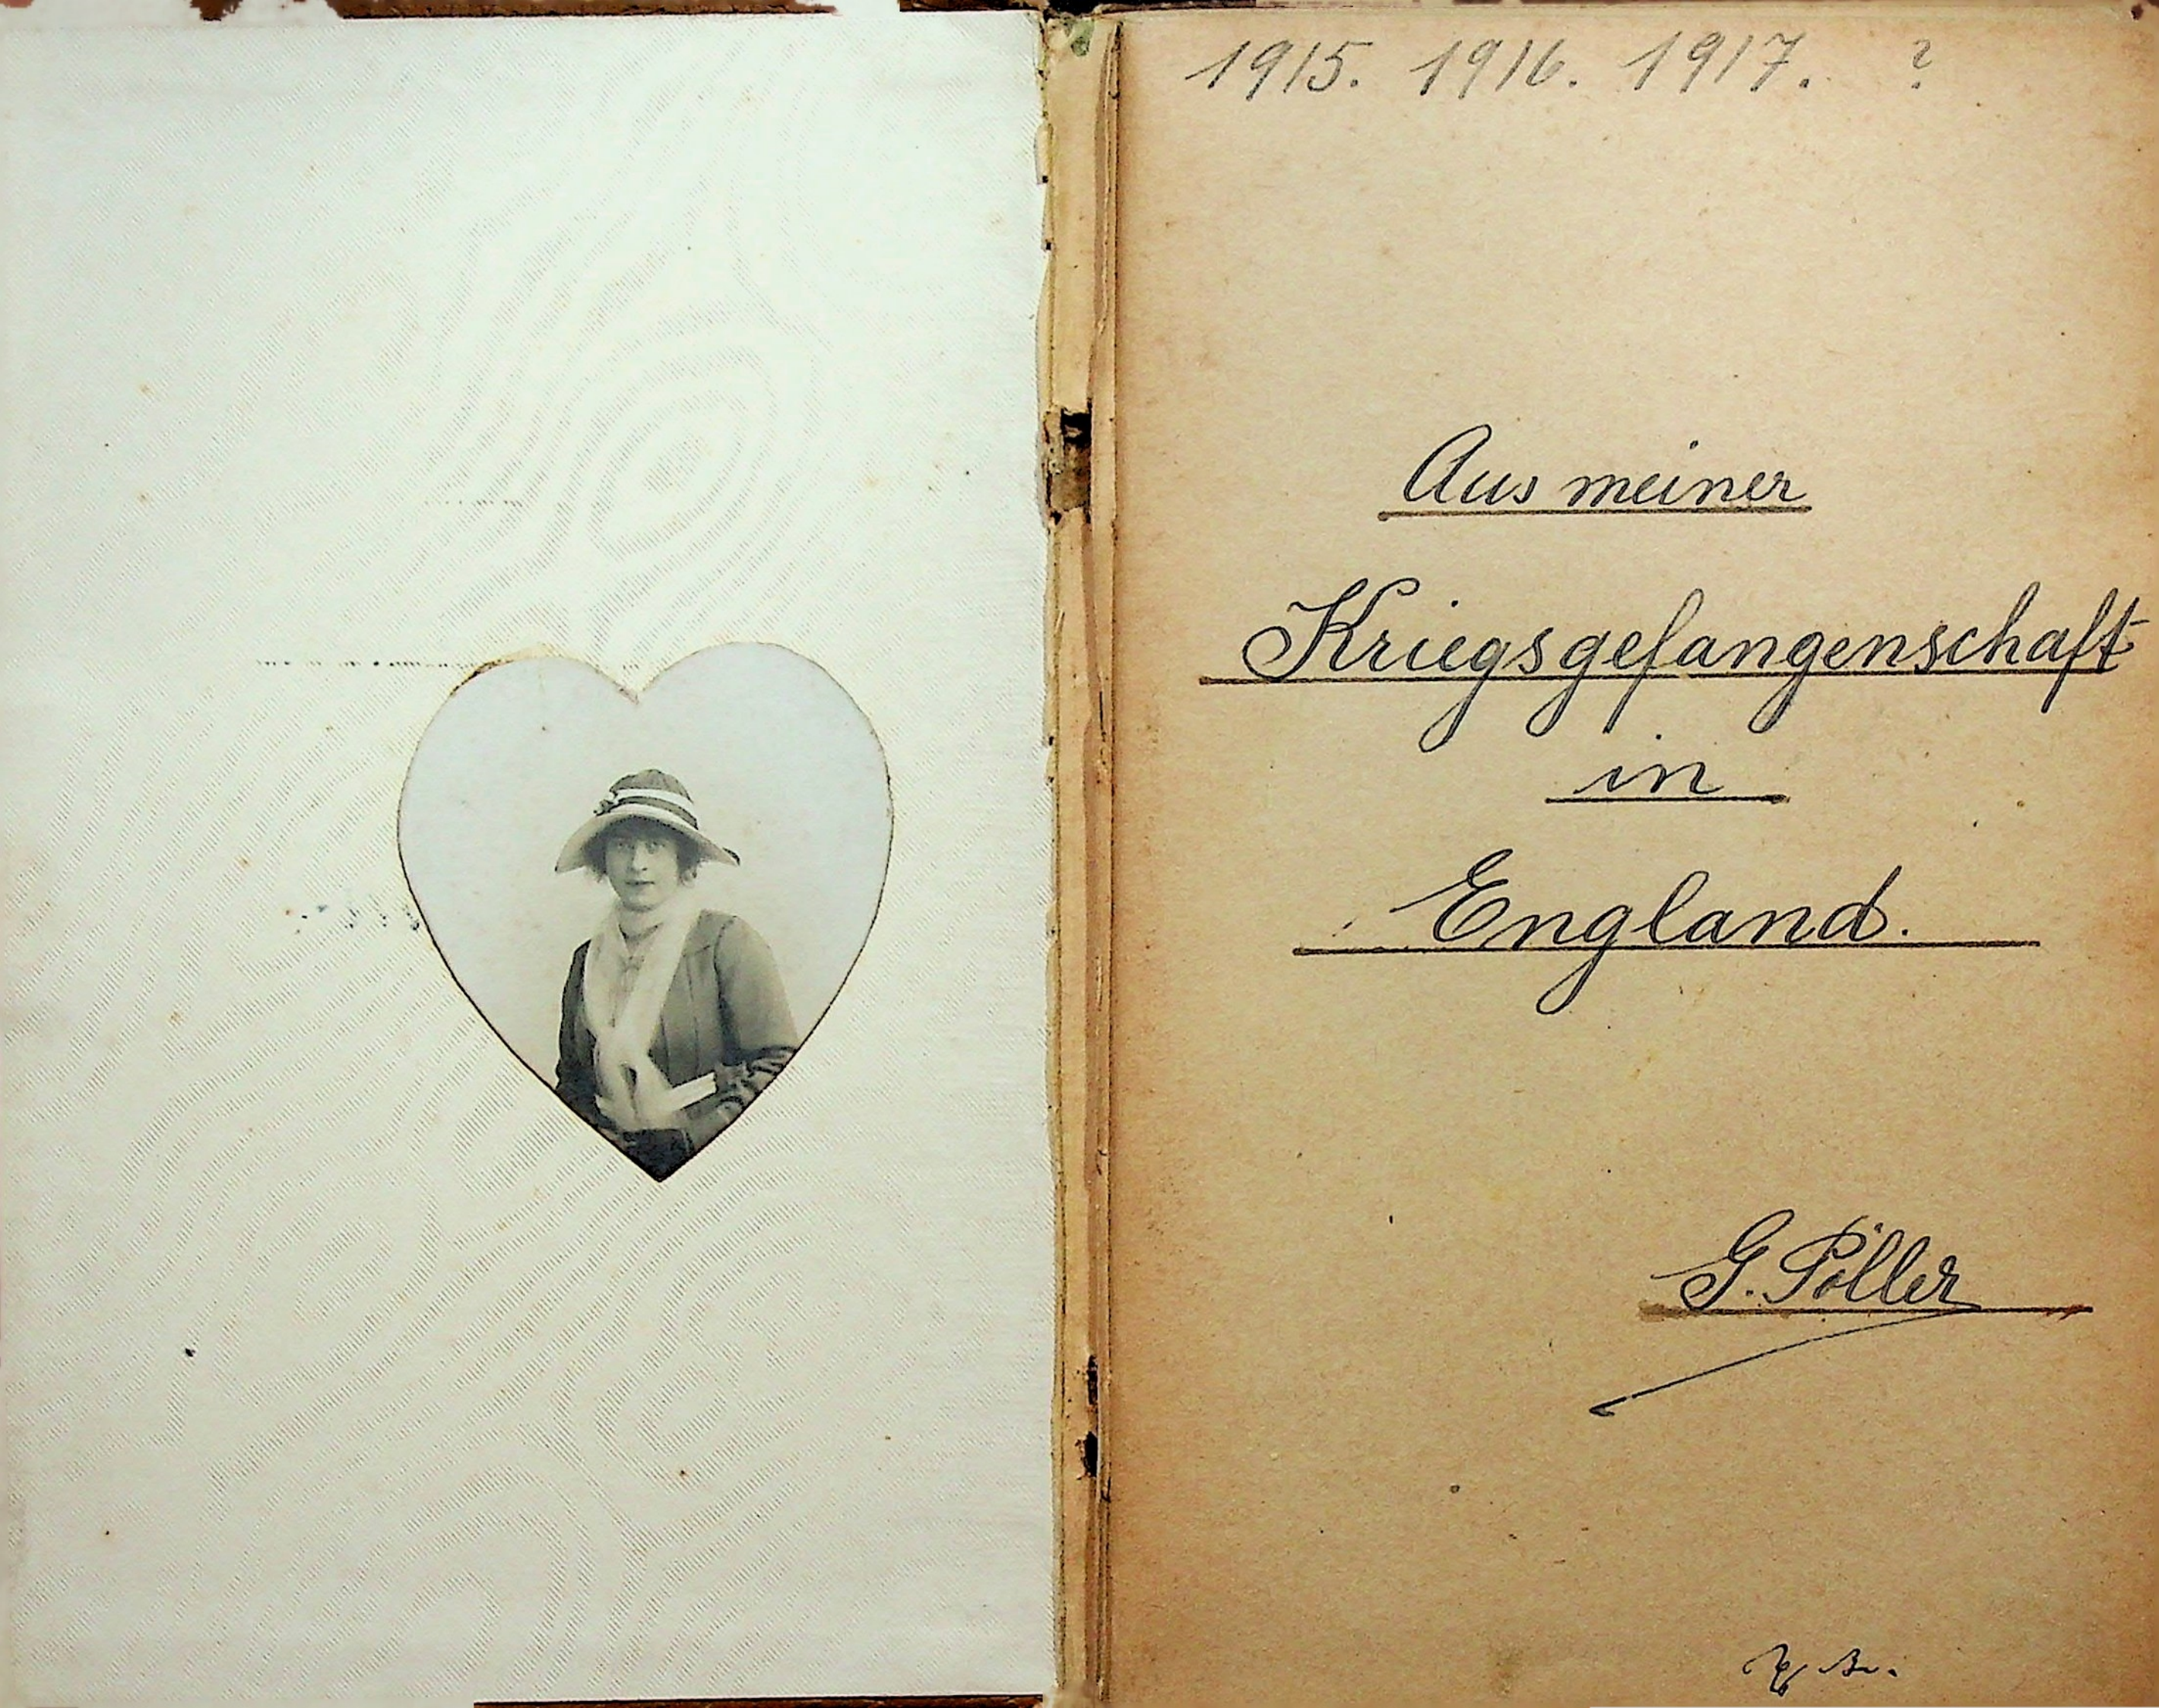 1915. 1916. 1917. ?
Aus meiner
Kriegsgefangenschaft
in
England.
G. Pöller